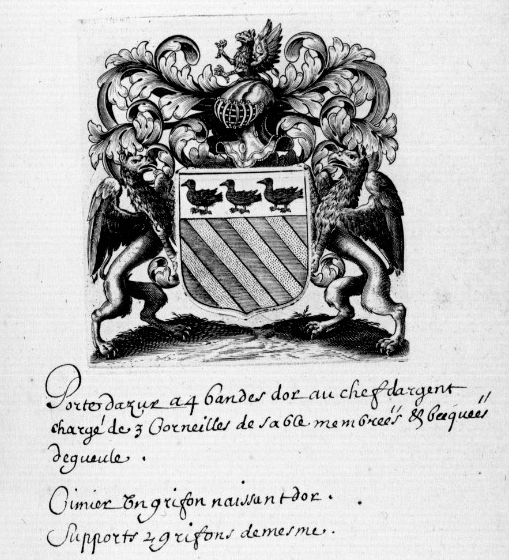 Porte dazur a 4 bandes dor au chef dargent
chargé de 3 Corneilles de sable membreés & becqueés
degueule .
Cimier Un grifon naissant dor .
Supports 2 grifons demesme .